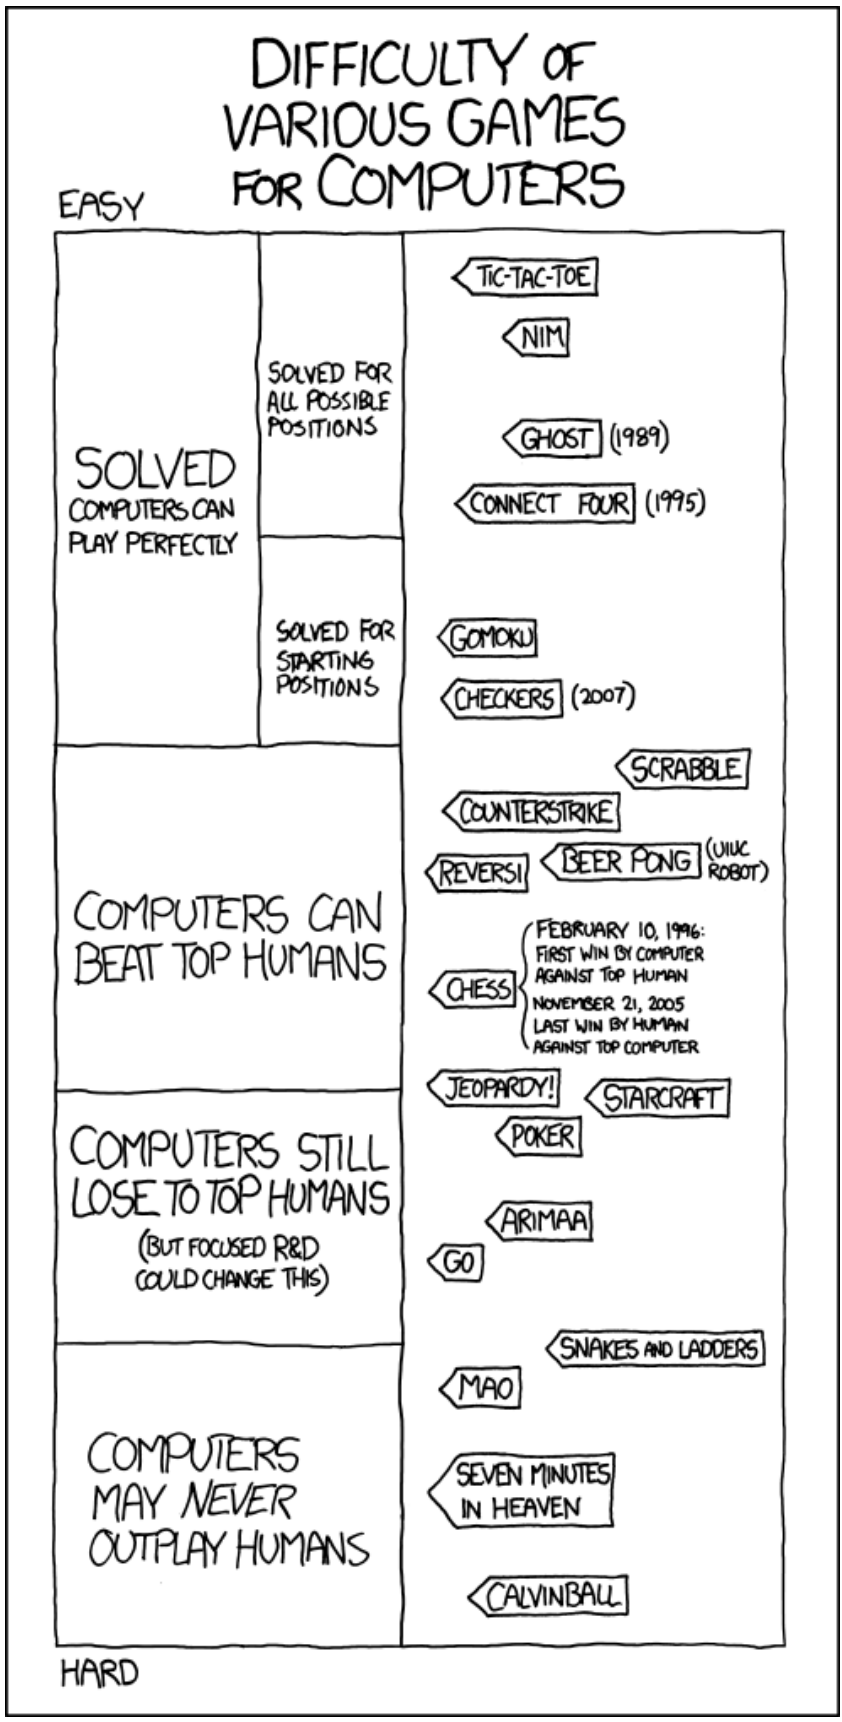 DIFFICULTY OF
VARIOUS GAMES
FOR COMPUTERS
EASY
SOLVED
COMPUTERS CAN
PLAY PERFECTLY
SOLVED FOR
ALL POSSIBLE
POSITIONS
TIC-TAC-TOE
NIM
GHOST (1989)
CONNECT FOUR (1995)
SOLVED FOR
STARTING
POSITIONS
GOMOKU
CHECKERS (2007)
COMPUTERS CAN
BEAT TOP HUMANS
SCRABBLE
COUNTERSTRIKE
REVERSI
BEER PONG (UIUC
ROBOT)
CHESS
FEBRUARY 10, 1996:
FIRST WIN BY COMPUTER
AGAINST TOP HUMAN
NOVEMBER 21, 2005
LAST WIN BY HUMAN
AGAINST TOP COMPUTER
JEOPARDY!
COMPUTERS STILL
LOSE TO TOP HUMANS
(BUT FOCUSED R&D
COULD CHANGE THIS)
STARCRAFT
POKER
ARIMAA
GO
COMPUTERS
MAY NEVER
OUTPLAY HUMANS
SNAKES AND LADDERS
MAO
SEVEN MINUTES
IN HEAVEN
CALVINBALL
HARD